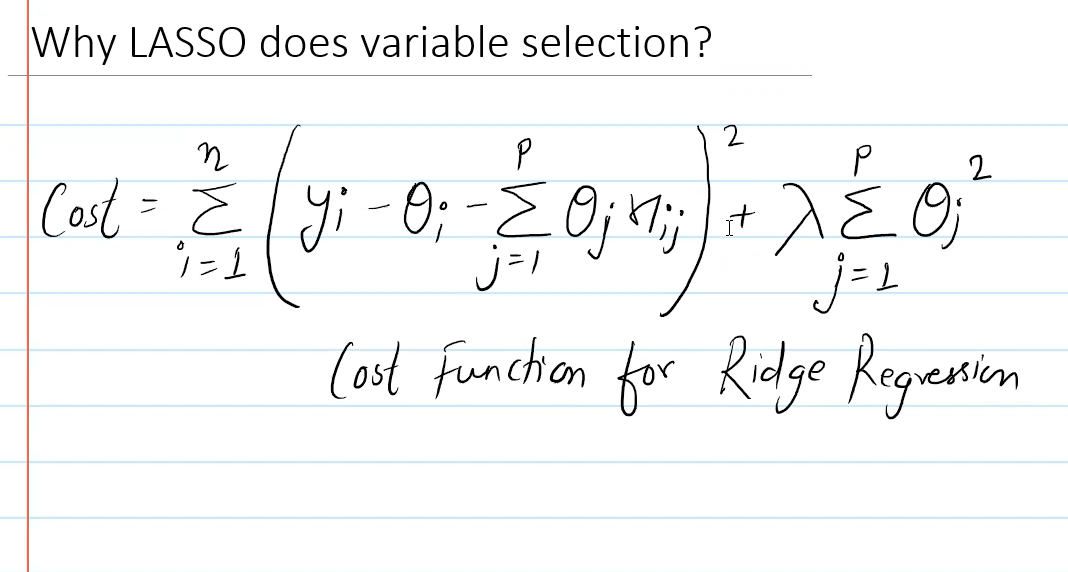 Why LASSO does variable selection?
Cost = Σᵢ₌₁ⁿ (yᵢ - θᵢ - Σⱼ₌₁ᵖ θⱼ xᵢⱼ)² + λ Σⱼ₌₁ᵖ θⱼ²
Cost Function for Ridge Regression